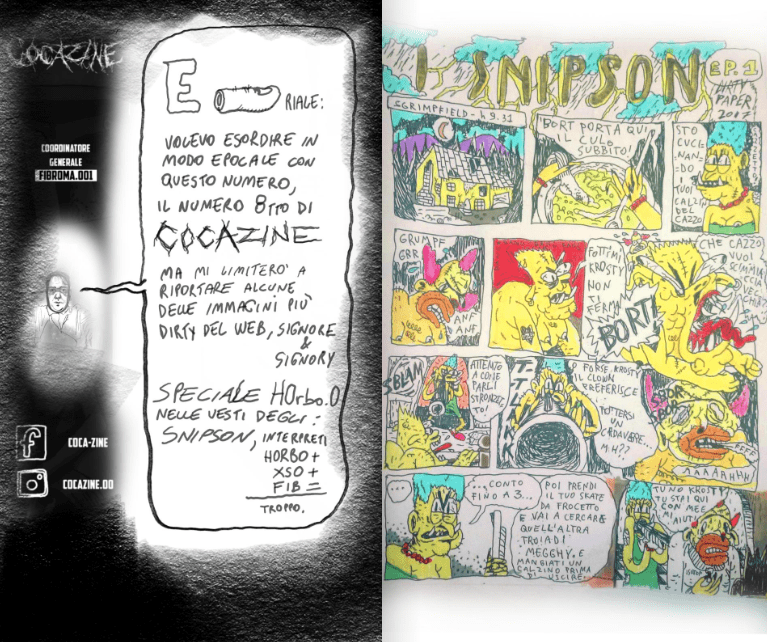 COCAZINE
COORDINATORE
GENERALE
FIBROMA.001
COCA-ZINE
COCAZINE.00
E RIALE:
VOLEVO ESORDIRE IN
MODO EPOCALE CON
QUESTO NUMERO,
IL NUMERO 8TTO DI
COCAZINE
MA MI LIMITERO' A
RIPORTARE ALCUNE
DELLE IMMAGINI PIÙ
DIRTY DEL WEB, SIGNORE
&
SIGNORY
SPECIALE HOrbo.O
NELLE VESTI DEGLI:
SNIPSON, INTERPRETI
HORBO+
XSO+
FIB=
TROPPO.
I SNIPSON
EP.1
DIRTY
PAPER
2017
SGRIMPFIELD - h 9.31
BORT PORTA QUI
IL CULO
SUBBITO!
STO
CUCI
NAN=
DO I
TUOI
CALZIN
DEL
CAZZO
GRUMPF
GRR
ANF
ANF
FOTTIMI
KROSTY
NON
TI
FERMA
BORT!
CHE CAZZO
VUOI
SCIMMIA
SBLAM
ATTENTO
A COME
PARLI
STRONZET
TO!
FORSE KROSTY
IL CLOWN
PREFERISCE
FOTTERSI
UN
CADAVERE...
M.H??
AAAAAHHH
...
...CONTO
FINO A 3...
POI PRENDI
IL TUO SKATE
DA FROCETTO
E VAI A CERCARE
QUELL'ALTRA
TROIA DI
MEGGHY. E
MANGIATI UN
CALZINO PRIMA
DI USCIRE.
TU NO KROSTY
TU STAI QUI
CON MEE